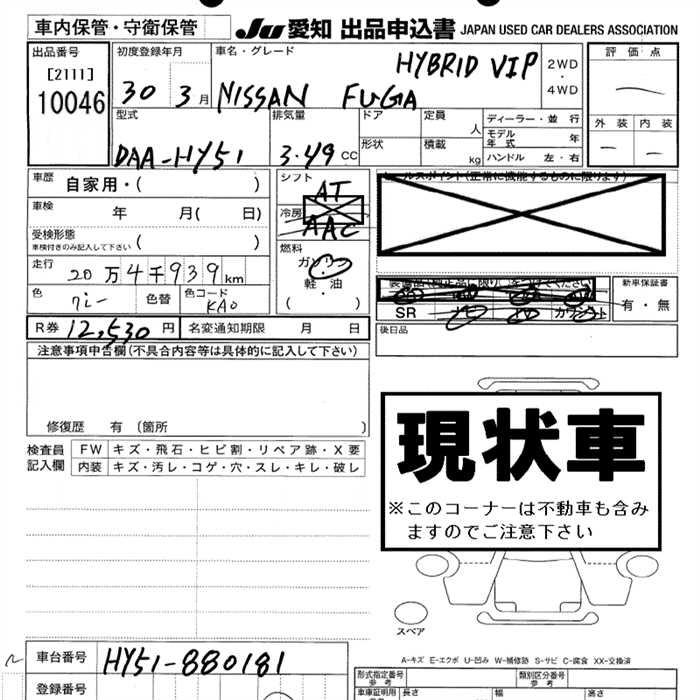 車内保管・守衛保管
JU 愛知 出品申込書 JAPAN USED CAR DEALERS ASSOCIATION
出品番号
[2111]
10046
初度登録年月
30 3月
車名・グレード
HYBRID VIP
NISSAN FUGA
2WD
・
4WD
評価点
外装 内装
型式
DAA-HY51
排気量
3.49 cc
ドア
形状
定員
人
積載
kg
ディーラー・並行
モデル年式 年
ハンドル 左・右
車歴 自家用・( )
車検 年 月( 日)
受検形態
車検付きのみ記入して下さい ( )
走行 20万4千939km
色 グレー 色替 色コード KAD
R券 12,530円 名変通知期限 月 日
シフト
AT
冷房
AAC
燃料
ガソリン
・
軽油
( )
セールスポイント(正常に機能するものに限ります)
SR
新車保証書
有・無
後日品
注意事項申告欄(不具合内容等は具体的に記入して下さい)
修復歴 有 〔箇所 〕
検査員
記入欄
FW キズ・飛石・ヒビ割・リペア跡・X要
内装 キズ・汚レ・コゲ・穴・スレ・キレ・破レ
現状車
※このコーナーは不動車も含み
ますのでご注意下さい
スペア
A-キズ E-エクボ U-凹み W-補修跡 S-サビ C-腐食 XX-交換済
車台番号 HY51-880181
登録番号
形式指定番号
参考
類別区分番号
参考
車庫証明用
長さ 幅 高さ